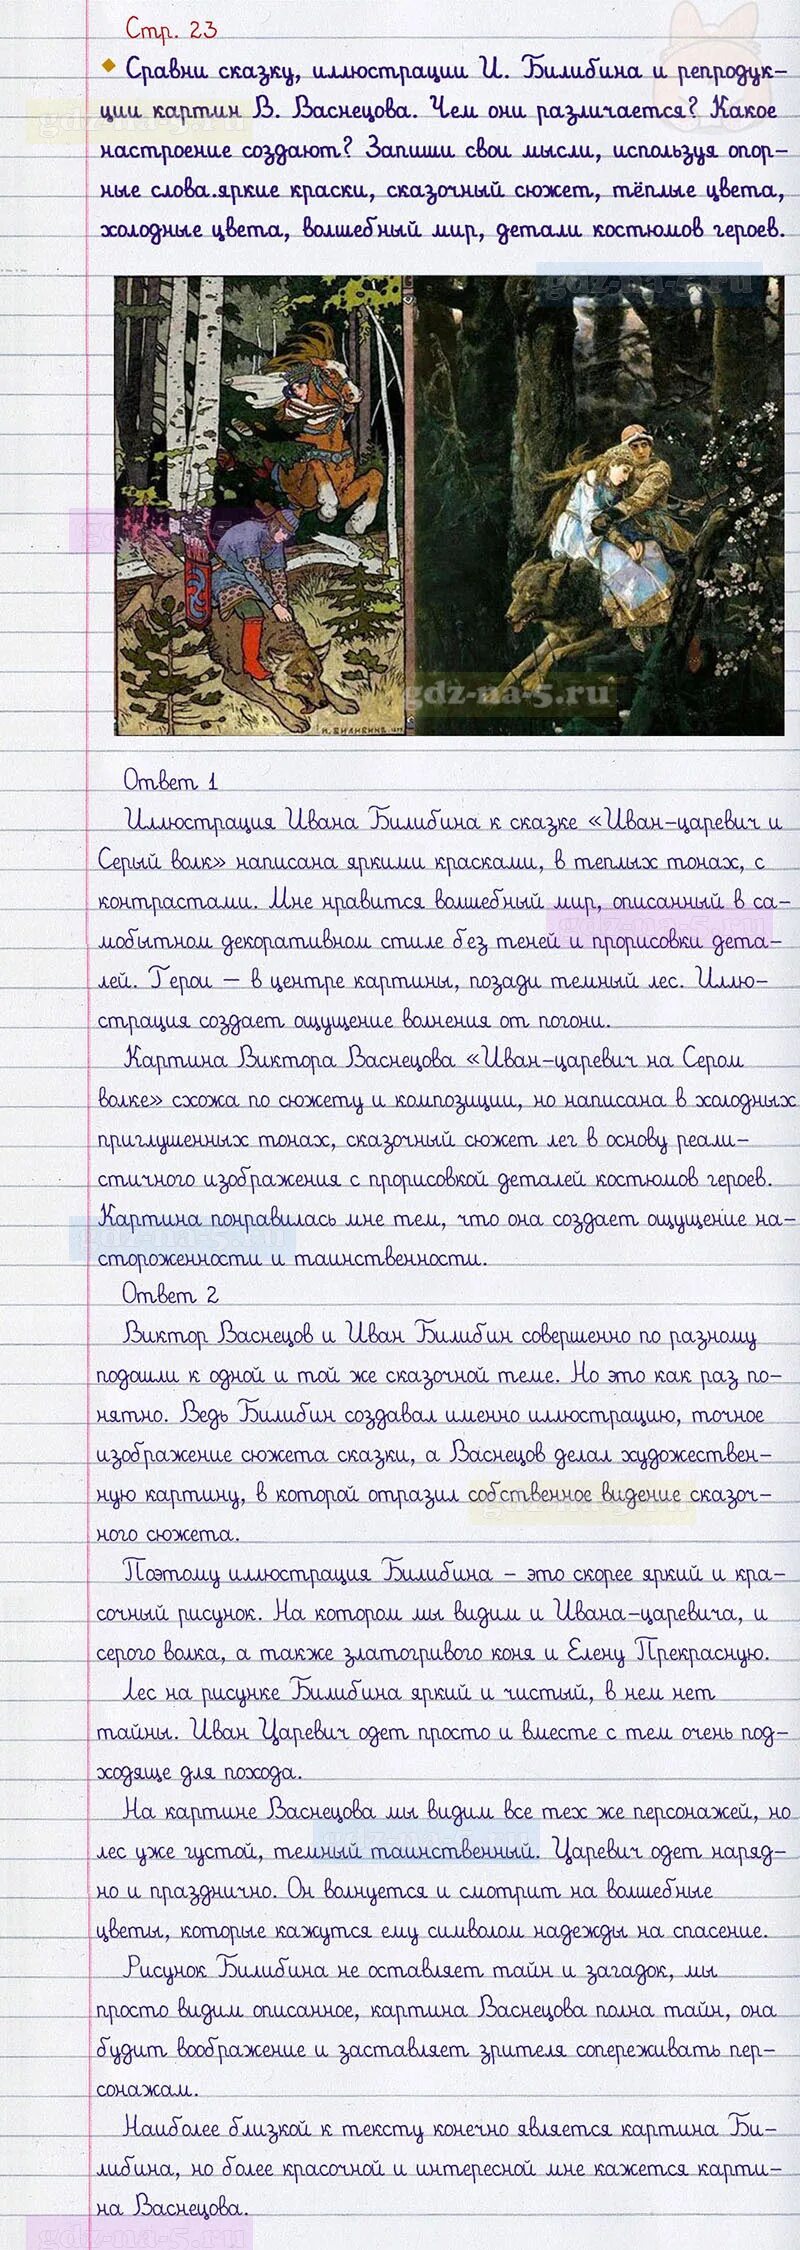 Стр. 23
Сравни сказку, иллюстрации И. Билибина и репродук-
ции картин В. Васнецова. Чем они различается? Какое
настроение создают? Запиши свои мысли, используя опор-
ные слова.яркие краски, сказочный сюжет, тёплые цвета,
холодные цвета, волшебный мир, детали костюмов героев.
gdz-na-5.ru
gdz-na-5.ru
gdz-na-5
gdz-na-5.ru
И. БИЛИБИНЪ
Ответ 1
Иллюстрация Ивана Билибина к сказке «Иван-царевич и
Серый волк» написана яркими красками, в теплых тонах, с
контрастами. Мне нравится волшебный мир, описанный в са-
мобытном декоративном стиле без теней и прорисовки дета-
лей. Герои – в центре картины, позади темный лес. Иллю-
страция создает ощущение волнения от погони.
gdz-na-5.ru
Картина Виктора Васнецова «Иван-царевич на Сером
волке» схожа по сюжету и композиции, но написана в холодных
приглушенных тонах, сказочный сюжет лег в основу реали-
стичного изображения с прорисовкой деталей костюмов героев.
Картина понравилась мне тем, что она создает ощущение на-
стороженности и таинственности.
gdz-na-5.ru
Ответ 2
Виктор Васнецов и Иван Билибин совершенно по разному
подошли к одной и той же сказочной теме. Но это как раз по-
нятно. Ведь Билибин создавал именно иллюстрацию, точное
изображение сюжета сказки, а Васнецов делал художествен-
ную картину, в которой отразил собственное видение сказоч-
ного сюжета.
gdz-na-5.ru
Поэтому иллюстрация Билибина – это скорее яркий и кра-
сочный рисунок. На котором мы видим и Ивана-царевича, и
серого волка, а также златогривого коня и Елену Прекрасную.
Лес на рисунке Билибина яркий и чистый, в нем нет
тайны. Иван Царевич одет просто и вместе с тем очень под-
ходяще для похода.
На картине Васнецова мы видим все тех же персонажей, но
лес уже густой, темный таинственный. Царевич одет наряд-
но и празднично. Он волнуется и смотрит на волшебные
цветы, которые кажутся ему символом надежды на спасение.
gdz-na-5.ru
Рисунок Билибина не оставляет тайн и загадок, мы
просто видим описанное, картина Васнецова полна тайн, она
будит воображение и заставляет зрителя сопереживать пер-
сонажам.
Наиболее близкой к тексту конечно является картина Би-
либина, но более красочной и интересной мне кажется карти-
на Васнецова.
gdz-na-5.ru